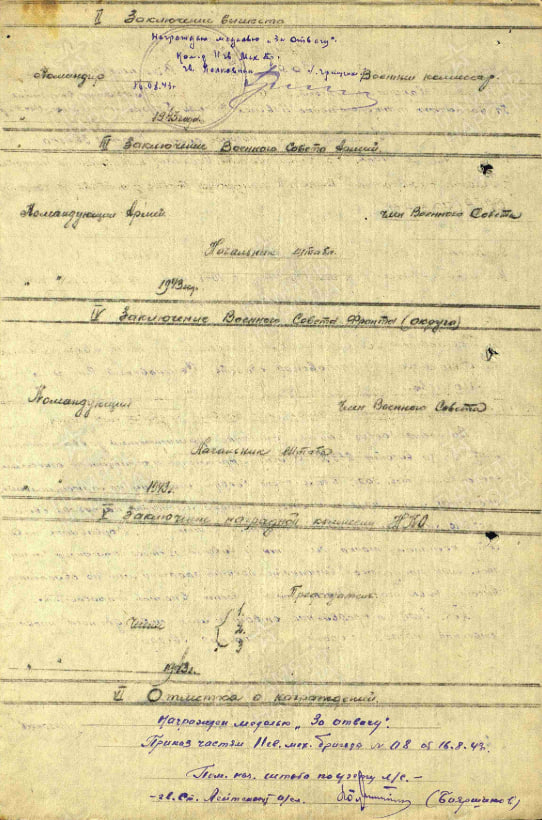 II Заключение
Награждаю медалью „За отвагу“.
Ком-р 11 Гв. Мех. Бр.
Гв. Полковник
Командир
Военный комиссар.
16.08.43г.
1943 года.
III Заключение Военного Совета Армий.
Командующий Армией
Член Военного Совета
Начальник штаба
" " 1943 г.
IV Заключение Военного Совета Фронта (округа)
Командующий
Член Военного Совета
Начальник штаба
" " 1943г.
V Заключение наградной комиссии НКО.
Председатель
Члены
1.
2.
3.
" " 1943г.
VI Отметка о награждений.
Награжден медалью „За отвагу“.
Приказ части 11 гв. мех. бригада № 08 об 16.8.43г.
Пом. нач. штаба по учету л/с. –
– гв. Ст. Лейтенант а/сл. (Бояршинов)